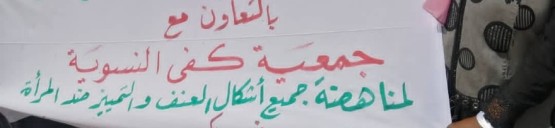 بالتعاون مع
جمعية كفى النسوية
لمناهضة جميع أشكال العنف والتمييز ضد المرأة